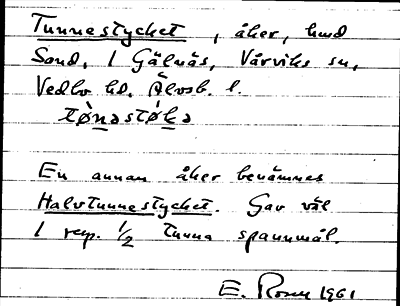 Tunnestycket, åker, hmd
Sand, 1 Gälnäs, Vårviks sn,
Vedbo hd. Älvsb. l.
tø̀nəstøkə
En annan åker benämnes
Halvtunnestycket. Gav väl
1 resp. 1/2 tunna spannmål.
E. Rosen 1961